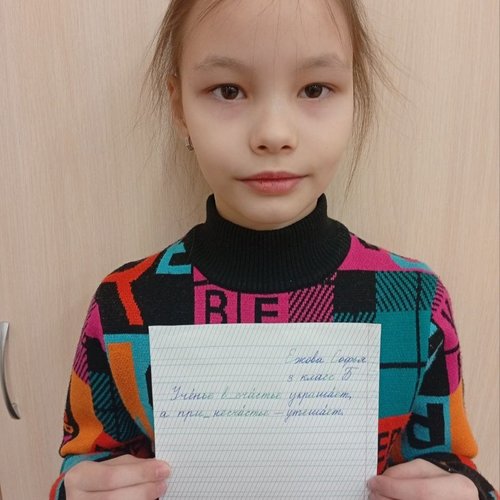 Ежова Софья
3 класс Б
Уче́нье в сча́стье украша́ет,
а при_несча́стье – утеша́ет.
BE